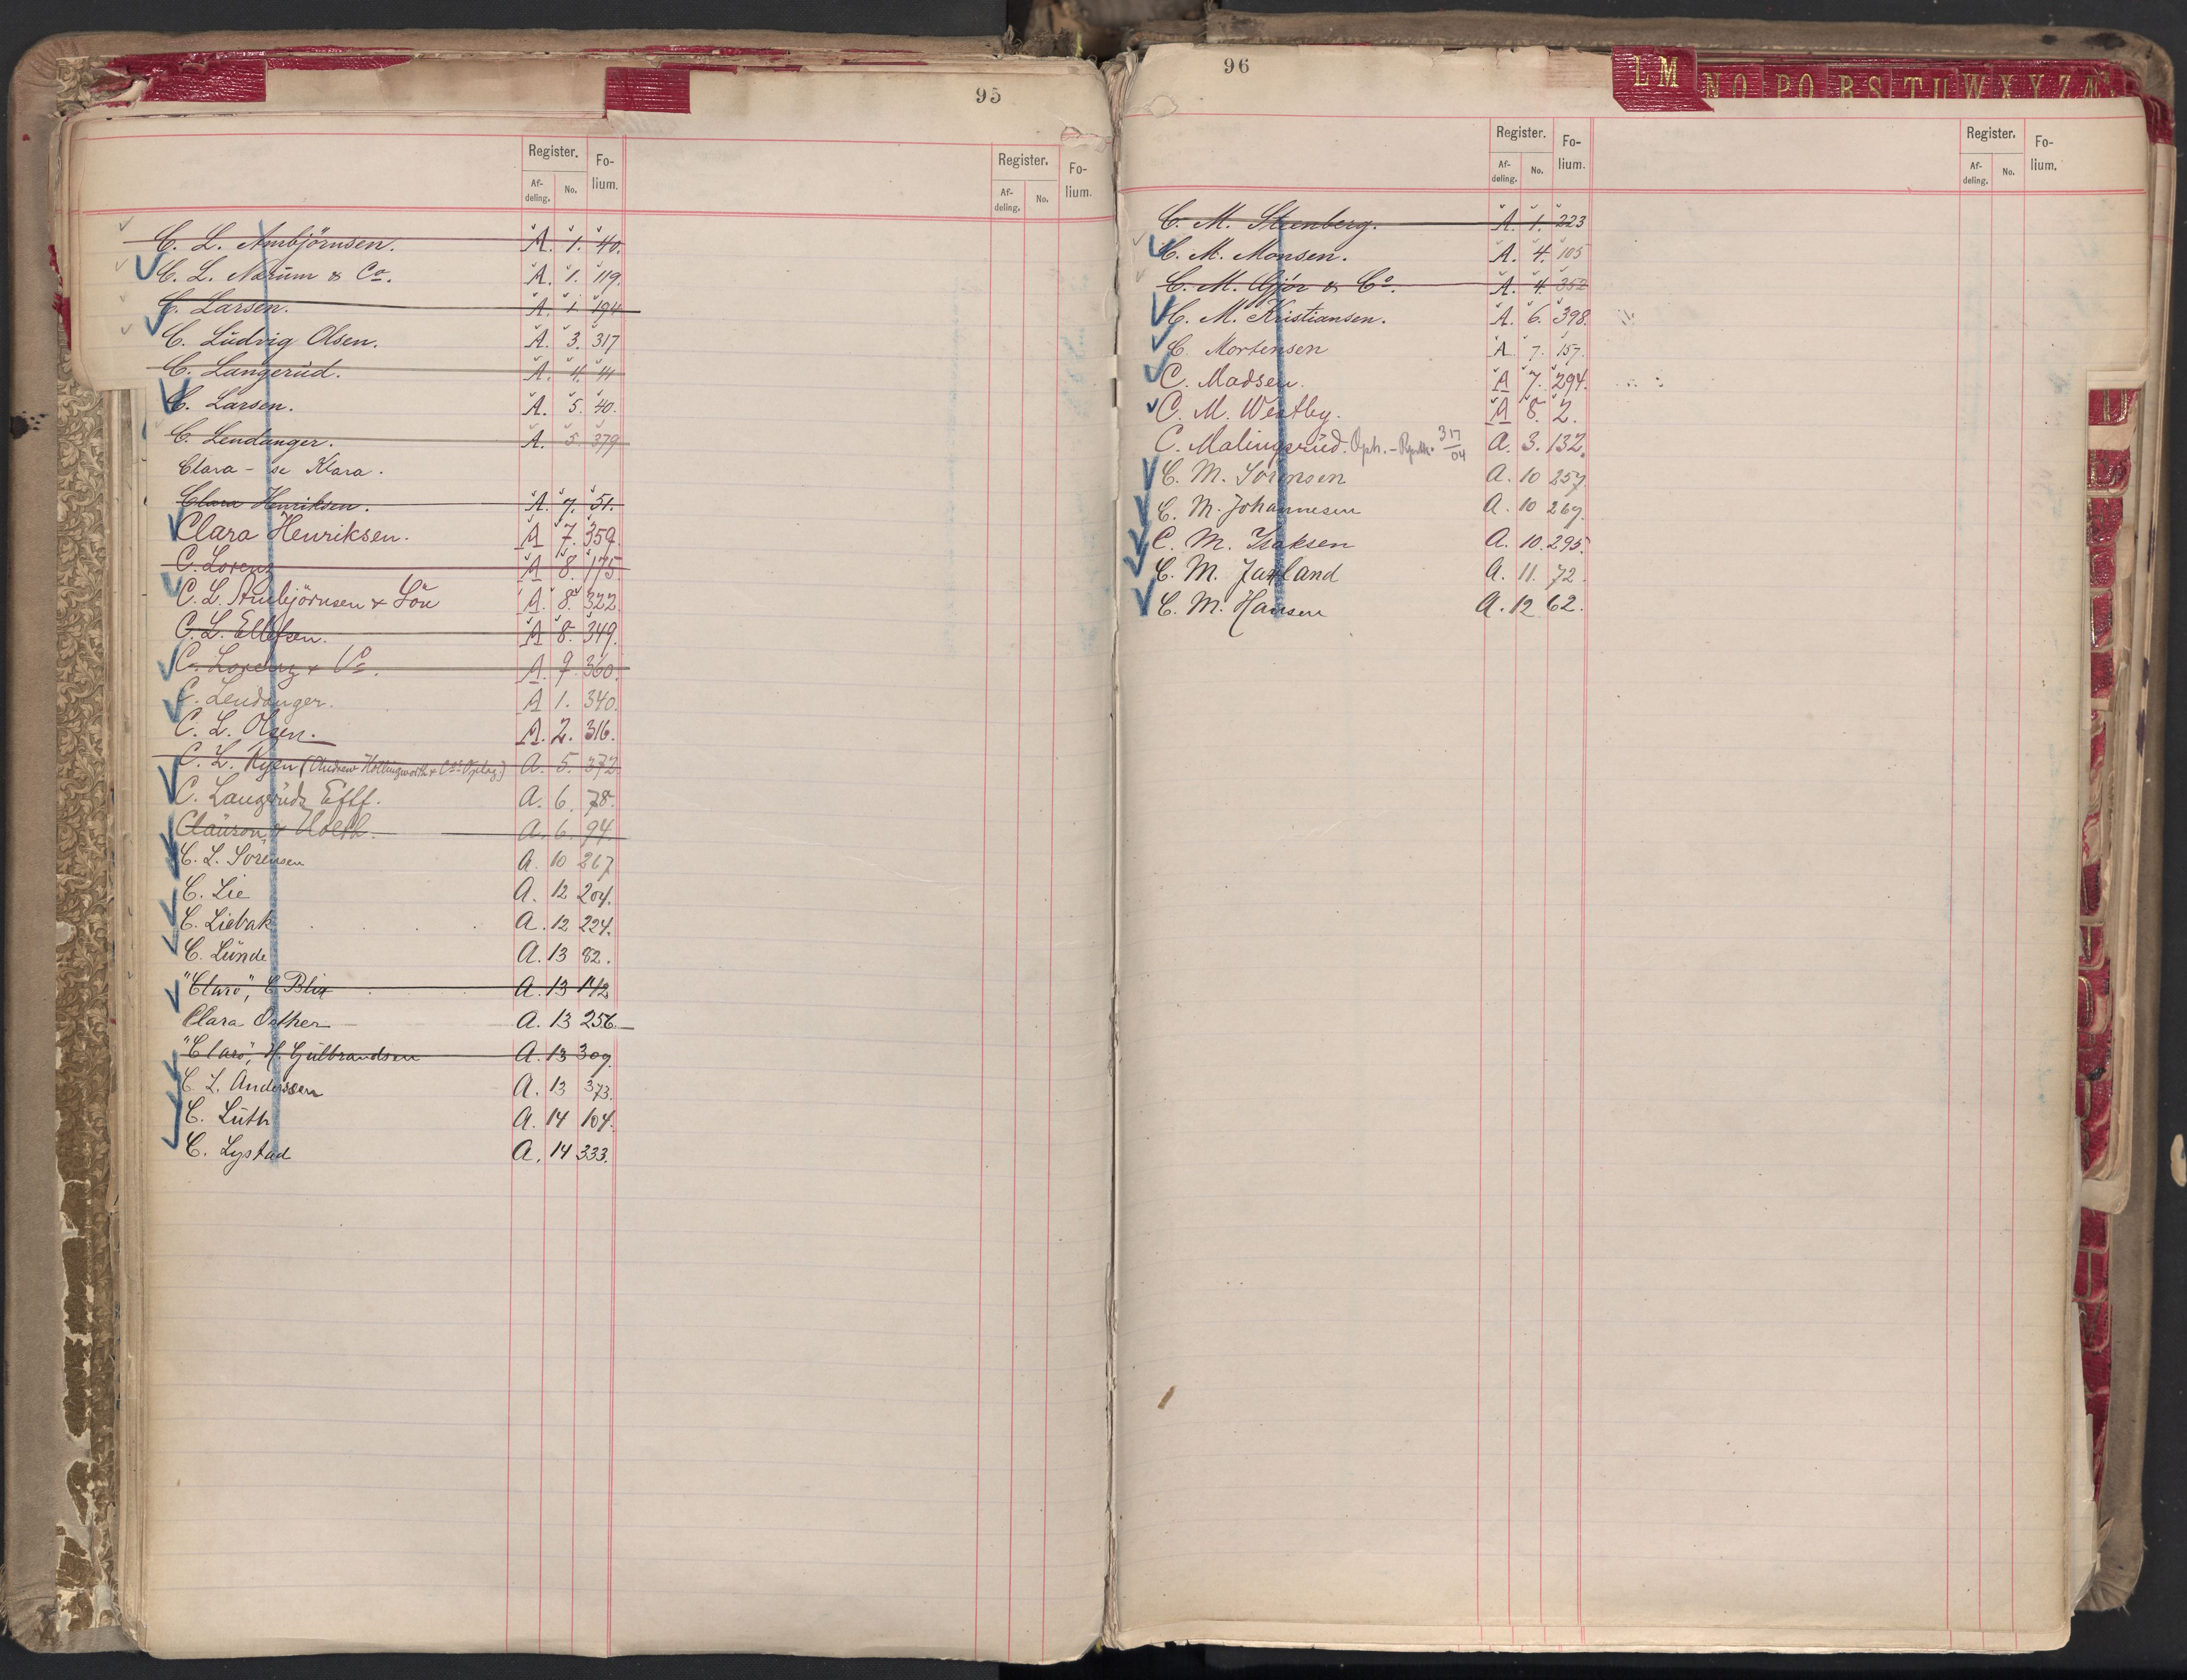 95
Register. Fo-
lium.
Af-
deling. No.
Register. Fo-
lium.
Af-
deling. No.
C. L. Ambjörnsen. A. 1. 40.
C. L. Narum & Co. A. 1. 119.
C. Larsen. A. 1. 194
C. Ludvig Olsen. A. 3. 317
C. Langerud. A. 4. 44
C. Larsen. A. 5. 40.
C. Lendanger. A. 5. 379
Clara - se Klara.
Clara Henriksen. A. 7. 51.
Clara Henriksen. A 7. 359.
C. Lorenz A 8. 175.
C. L. Ambjörnsen & Sön A. 8. 322
C. L. Ellefsen. A 8. 349.
C. Lorenz & Co. A. 9. 360.
C. Lendanger. A 1. 340.
C. L. Olsen. A. 2. 316.
C. L. Ryen (Andrew Hollingworth & Co's Oplag.) A. 5. 372
C. Langeruds Eftf. A. 6. 78.
Clauson & Holth. A. 6. 94.
C. L. Sörensen A. 10 267
C. Lie A. 12 204.
C. Liebak A. 12 224.
C. Lunde A. 13 82.
"Claro", C. Blix A. 13 142
Clara Osther A. 13 256
"Claro", H. Gulbrandsen A. 13 309.
C. L. Anderssen A. 13 373.
C. Luth A. 14 104.
C. Lystad A. 14 333.
96
L M N O P Q R S T U W X Y Z Æ
Register. Fo-
lium.
Af-
deling. No.
Register. Fo-
lium.
Af-
deling. No.
C. M. Steenberg. A. 1. 223
C. M. Monsen. A. 4. 105
C. M. Gjör & Co. A. 4. 352
C. M. Kristiansen. A. 6. 398.
C. Mortensen A 7. 157.
C. Madsen. A 7. 294.
C. M. Westby. A 8. 2.
C. Malingsrud. Oph. 3 17/04 A. 3. 132.
C. M. Sörensen A. 10 257
C. M. Johannesen A. 10 269.
C. M. Isaksen A. 10. 295.
C. M. Jarland A. 11. 72.
C. M. Hansen A. 12 62.